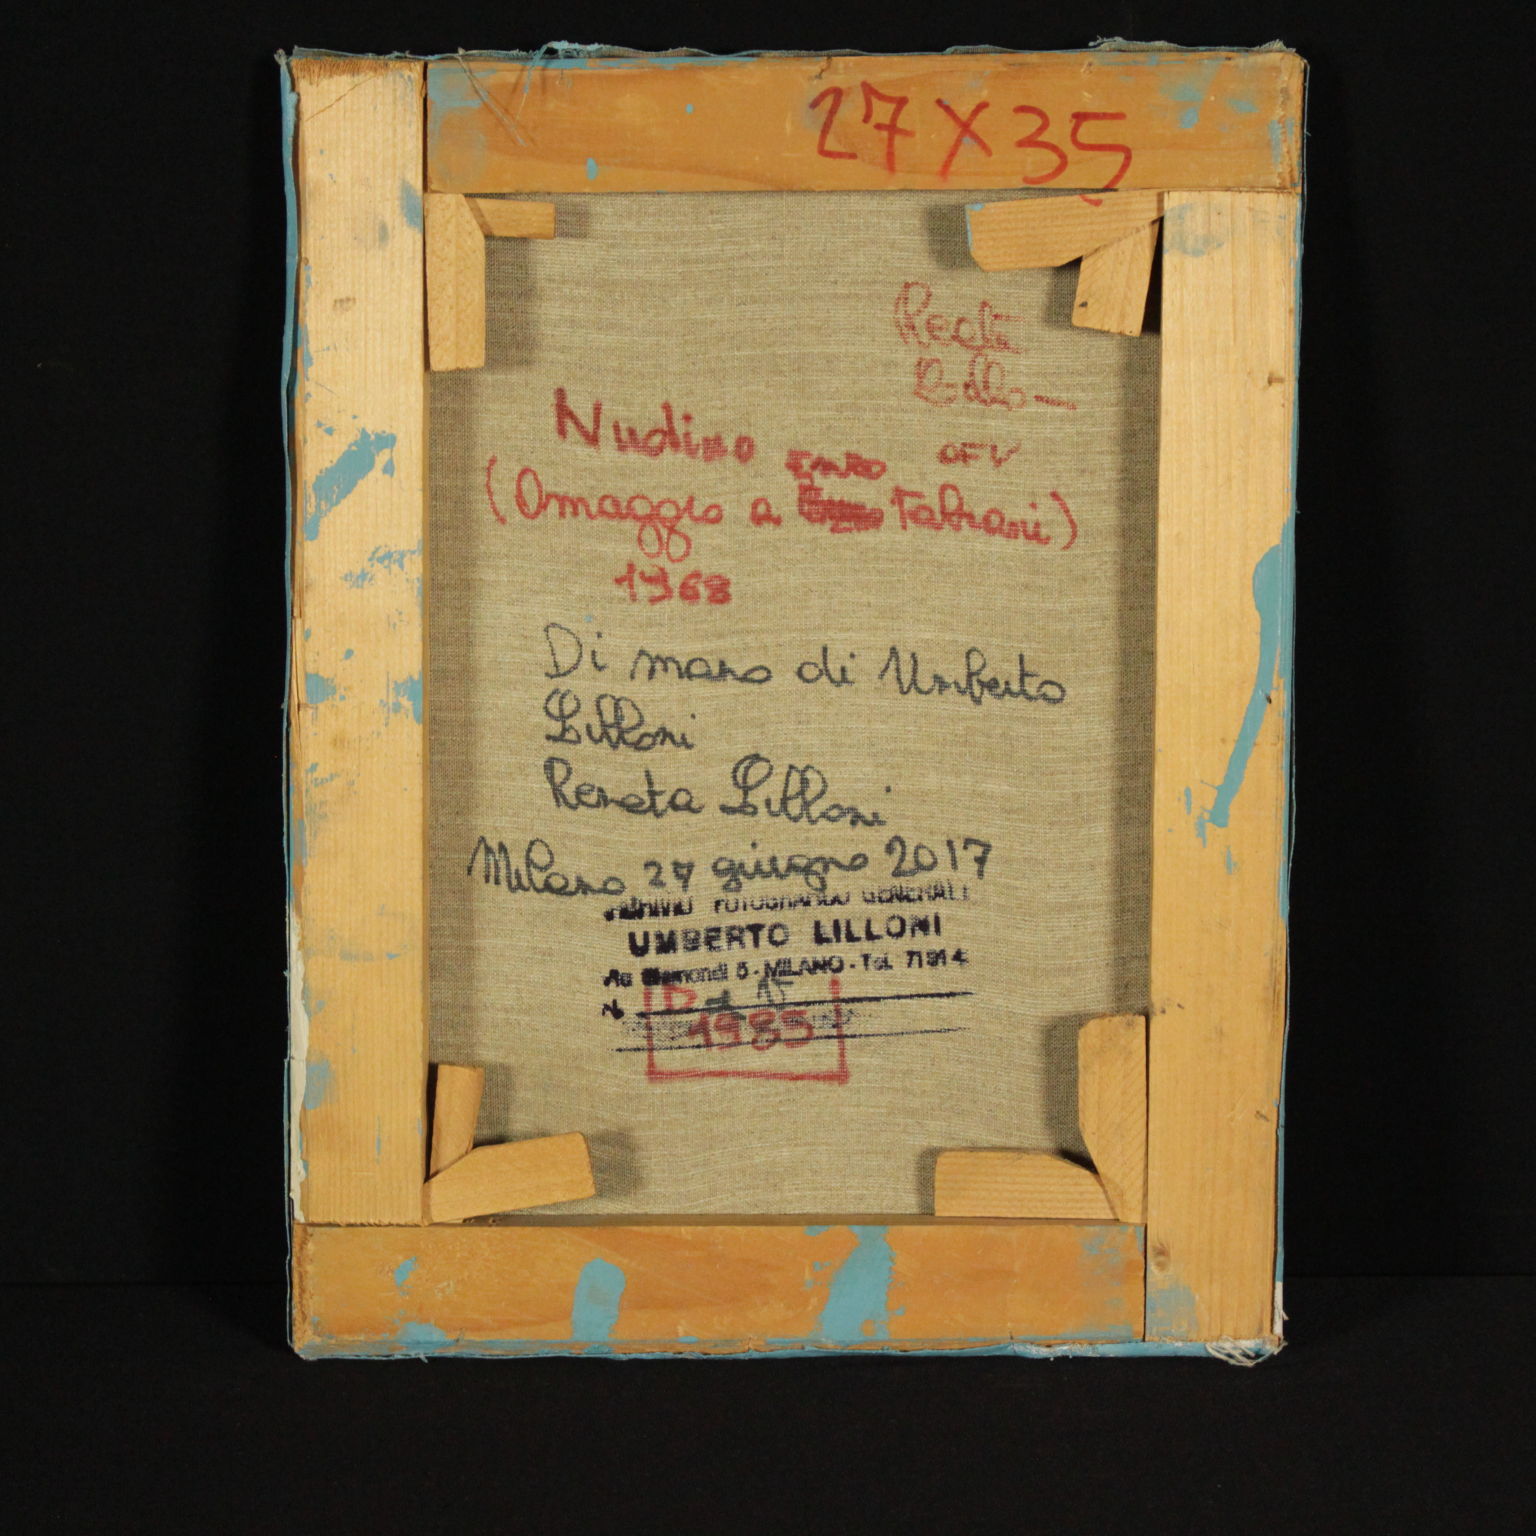 27 X 35
Nudino
OFV
enzo
(Omaggio a Fabiani)
1968
Di mano di Umberto
Lilloni
Renata Lilloni
Milano, 27 giugno 2017
ARCHIVIO FOTOGRAFICO GENERALE
UMBERTO LILLONI
5 - MILANO - Tel. 71914
N.
1985